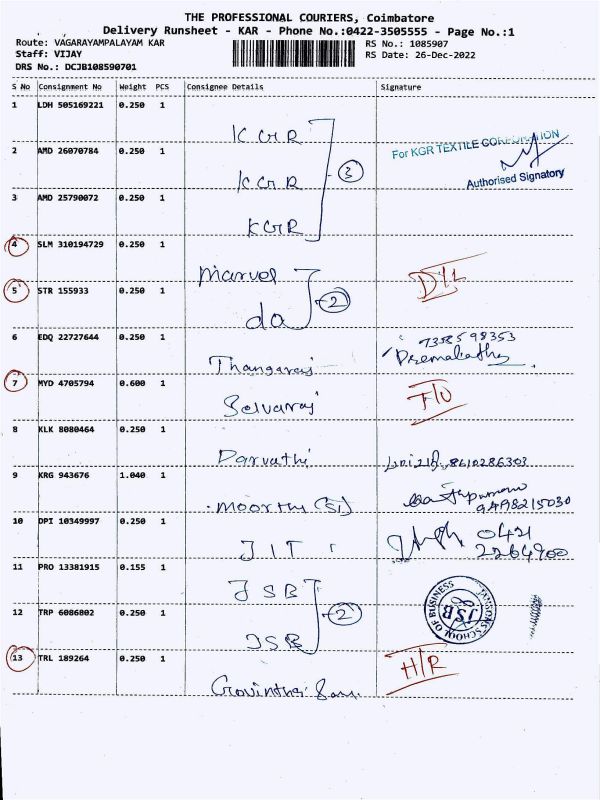 THE PROFESSIONAL COURIERS, Coimbatore
Delivery Runsheet - KAR - Phone No.:0422-3505555 - Page No.:1
Route: VAGARAYAMPALAYAM KAR
RS No.: 1085907
Staff: VIJAY
RS Date: 26-Dec-2022
DRS No.: DCJB108590701
S No Consignment No Weight PCS Consignee Details Signature
1 LDH 505169221 0.250 1
KGR
For KGR TEXTILE CORPORATION
2 AMD 26070784 0.250 1
KGR 3
Authorised Signatory
3 AMD 25790072 0.250 1
KGR
4 SLM 310194729 0.250 1
Marvel
D/L
5 STR 155933 0.250 1
do 2
6 EDQ 22727644 0.250 1
7358598353
Thangaraj Premalatha
7 MYD 4705794 0.600 1
Selvaraj
8 KLK 8080464 0.250 1
Parvathi 8610286303
9 KRG 943676 1.040 1
Moorthy (SI) 9498215030
10 DPI 10349997 0.250 1
JIT 0421
2264900
11 PRO 13381915 0.155 1
JSB
JANSONS SCHOOL OF BUSINESS
JSB
12 TRP 6086802 0.250 1
JSB 2
13 TRL 189264 0.250 1
H/R